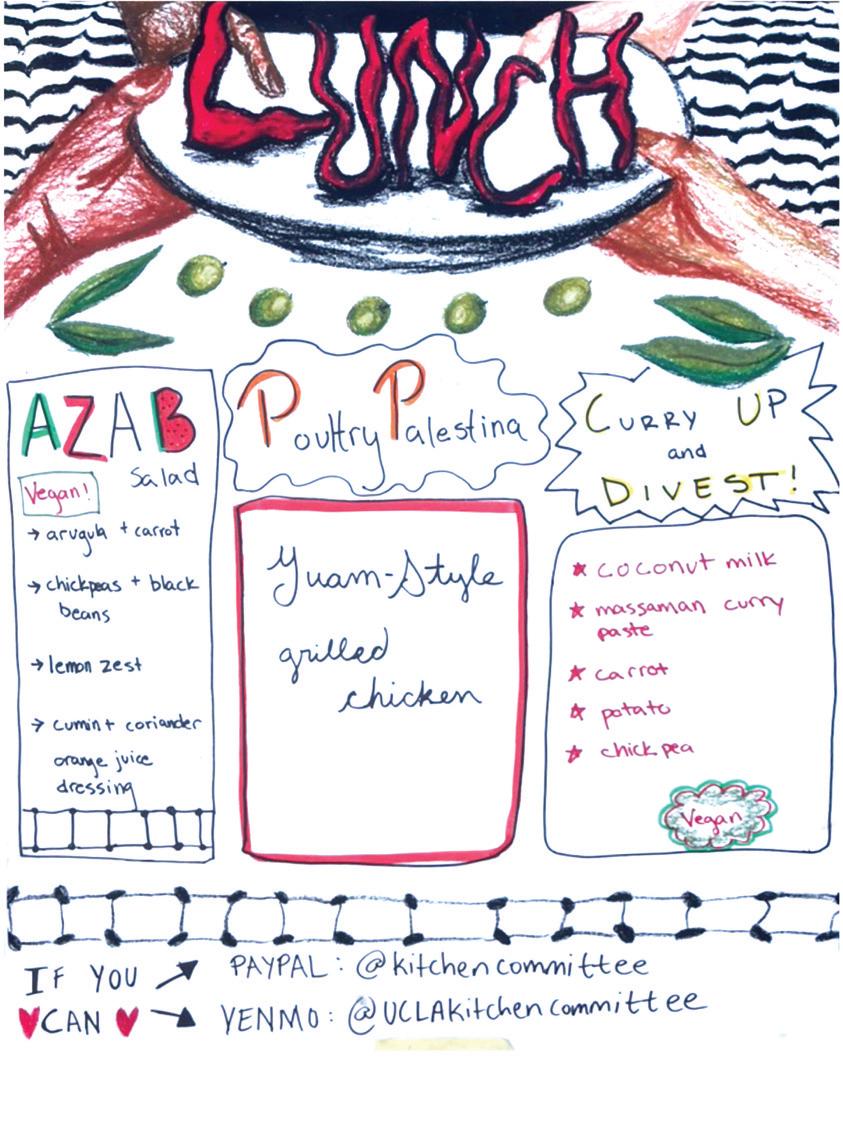 LUNCH
AZAB
Salad
Vegan!
→ arugula + carrot
→ chickpeas + black
beans
→ lemon zest
→ cumin + coriander
orange juice
dressing
Poultry Palestina
Yuam-Style
grilled
chicken
CURRY UP
and
DIVEST!
★ coconut milk
★ massaman curry
paste
★ carrot
★ potato
★ chickpea
Vegan
IF YOU → PAYPAL: @kitchencommittee
♥CAN♥ → VENMO: @UCLAkitchencommittee